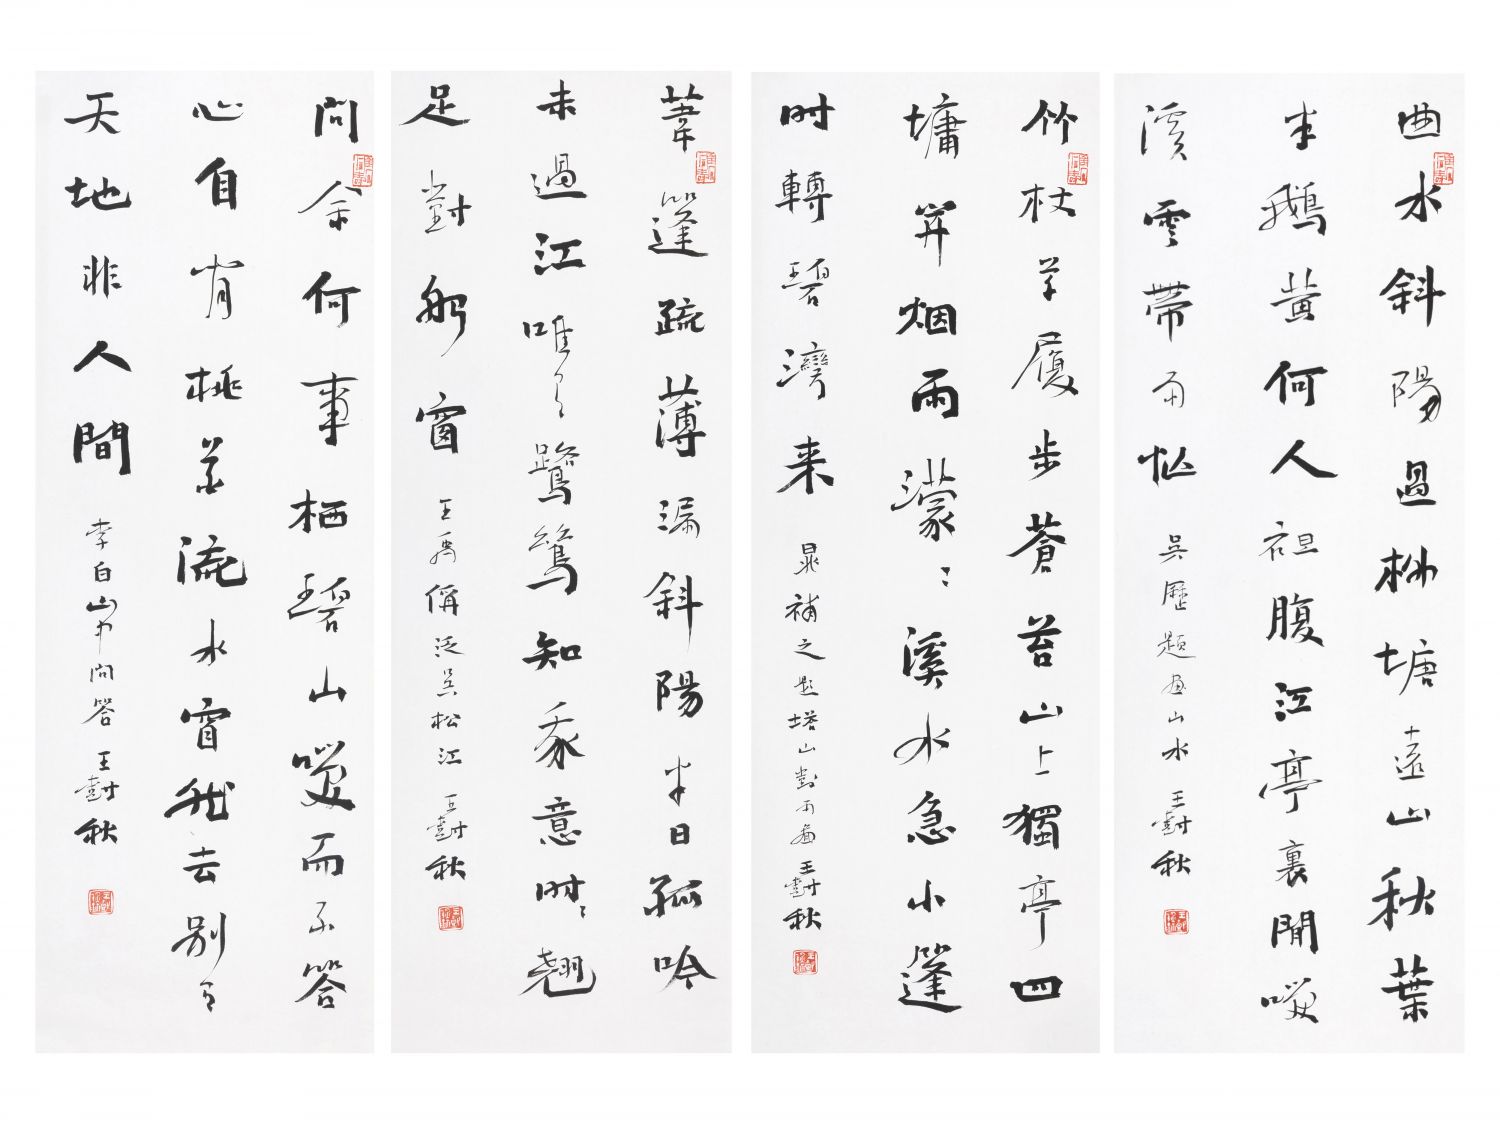 曲水斜陽過柳塘遠山秋葉
半鵝黄何人袒腹江亭裏閒笑
溪雲帶雨忙 吳歷題畫山水 王尌秋
竹杖草履步蒼苔山上獨亭四
墉開烟雨濛濛溪水急小篷
时轉碧灣来 晁補之題塔山對雨圖 王尌秋
葦篷疏薄漏斜陽半日孤吟
未過江唯有鷺鷥知我意时時翹
足對船窗 王禹偁泛吳松江 王尌秋
問余何事栖碧山笑而不答
心自閒桃花流水窅然去别有
天地非人間 李白山中問答 王尌秋